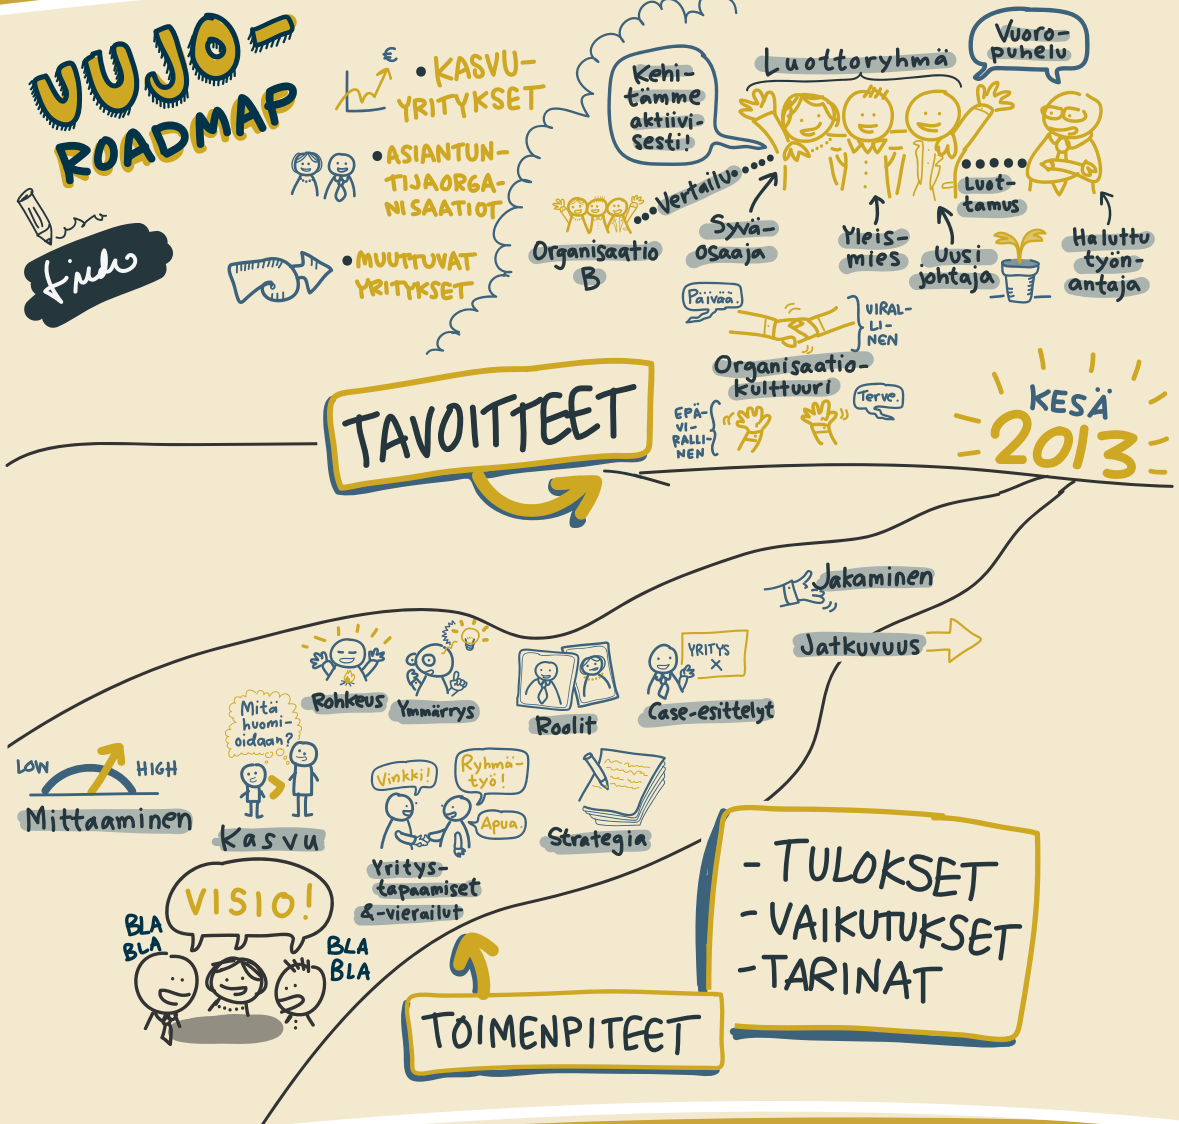 UUJO-
ROADMAP
€
• KASVU-
YRITYKSET
• ASIANTUN-
TIJAORGA-
NISAATIOT
• MUUTTUVAT
YRITYKSET
Kehi-
tämme
aktiivi-
sesti!
Luottoryhmä
Vuoro-
puhelu
Vertailu
Organisaatio
B
Syvä-
osaaja
Yleis-
mies
Uusi
johtaja
Luot-
tamus
Haluttu
työn-
antaja
Päivää.
VIRAL-
LI-
NEN
Organisaatio-
kulttuuri
EPÄ-
VI-
RALLI-
NEN
Terve.
TAVOITTEET
KESÄ
2013
Jakaminen
Jatkuvuus
Rohkeus
Ymmärrys
Roolit
YRITYS
X
Case-esittelyt
Mitä
huomi-
oidaan?
LOW
HIGH
Mittaaminen
Kasvu
Vinkki!
Ryhmä-
työ!
Apua.
Yritys-
tapaamiset
&-vierailut
Strategia
VISIO!
BLA
BLA
BLA
BLA
TOIMENPITEET
- TULOKSET
- VAIKUTUKSET
- TARINAT